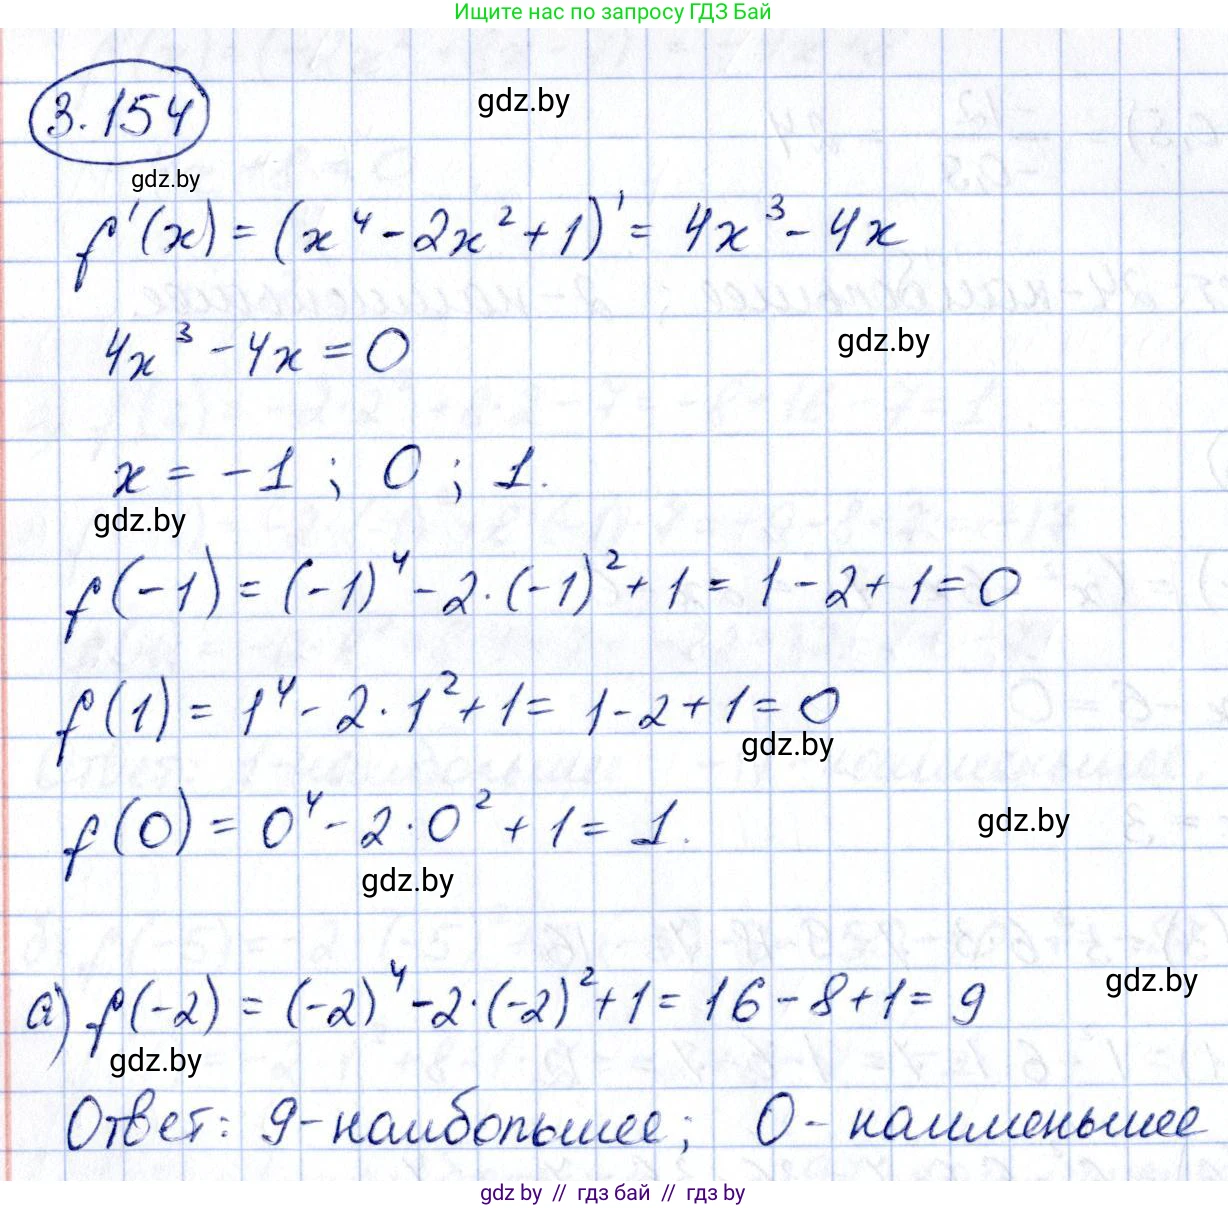 Ищите нас по запросу ГДЗ Бай
3.154
gdz.by
gdz.by
f'(x) = (x⁴ - 2x² + 1)' = 4x³ - 4x
4x³ - 4x = 0
gdz.by
x = -1 ; 0 ; 1.
gdz.by
f(-1) = (-1)⁴ - 2·(-1)² + 1 = 1 - 2 + 1 = 0
f(1) = 1⁴ - 2·1² + 1 = 1 - 2 + 1 = 0
gdz.by
f(0) = 0⁴ - 2·0² + 1 = 1.
gdz.by
gdz.by
а) f(-2) = (-2)⁴ - 2·(-2)² + 1 = 16 - 8 + 1 = 9
gdz.by
gdz.by
Ответ: 9 - наибольшее; 0 - наименьшее
gdz.by // гдз бай // гдз by